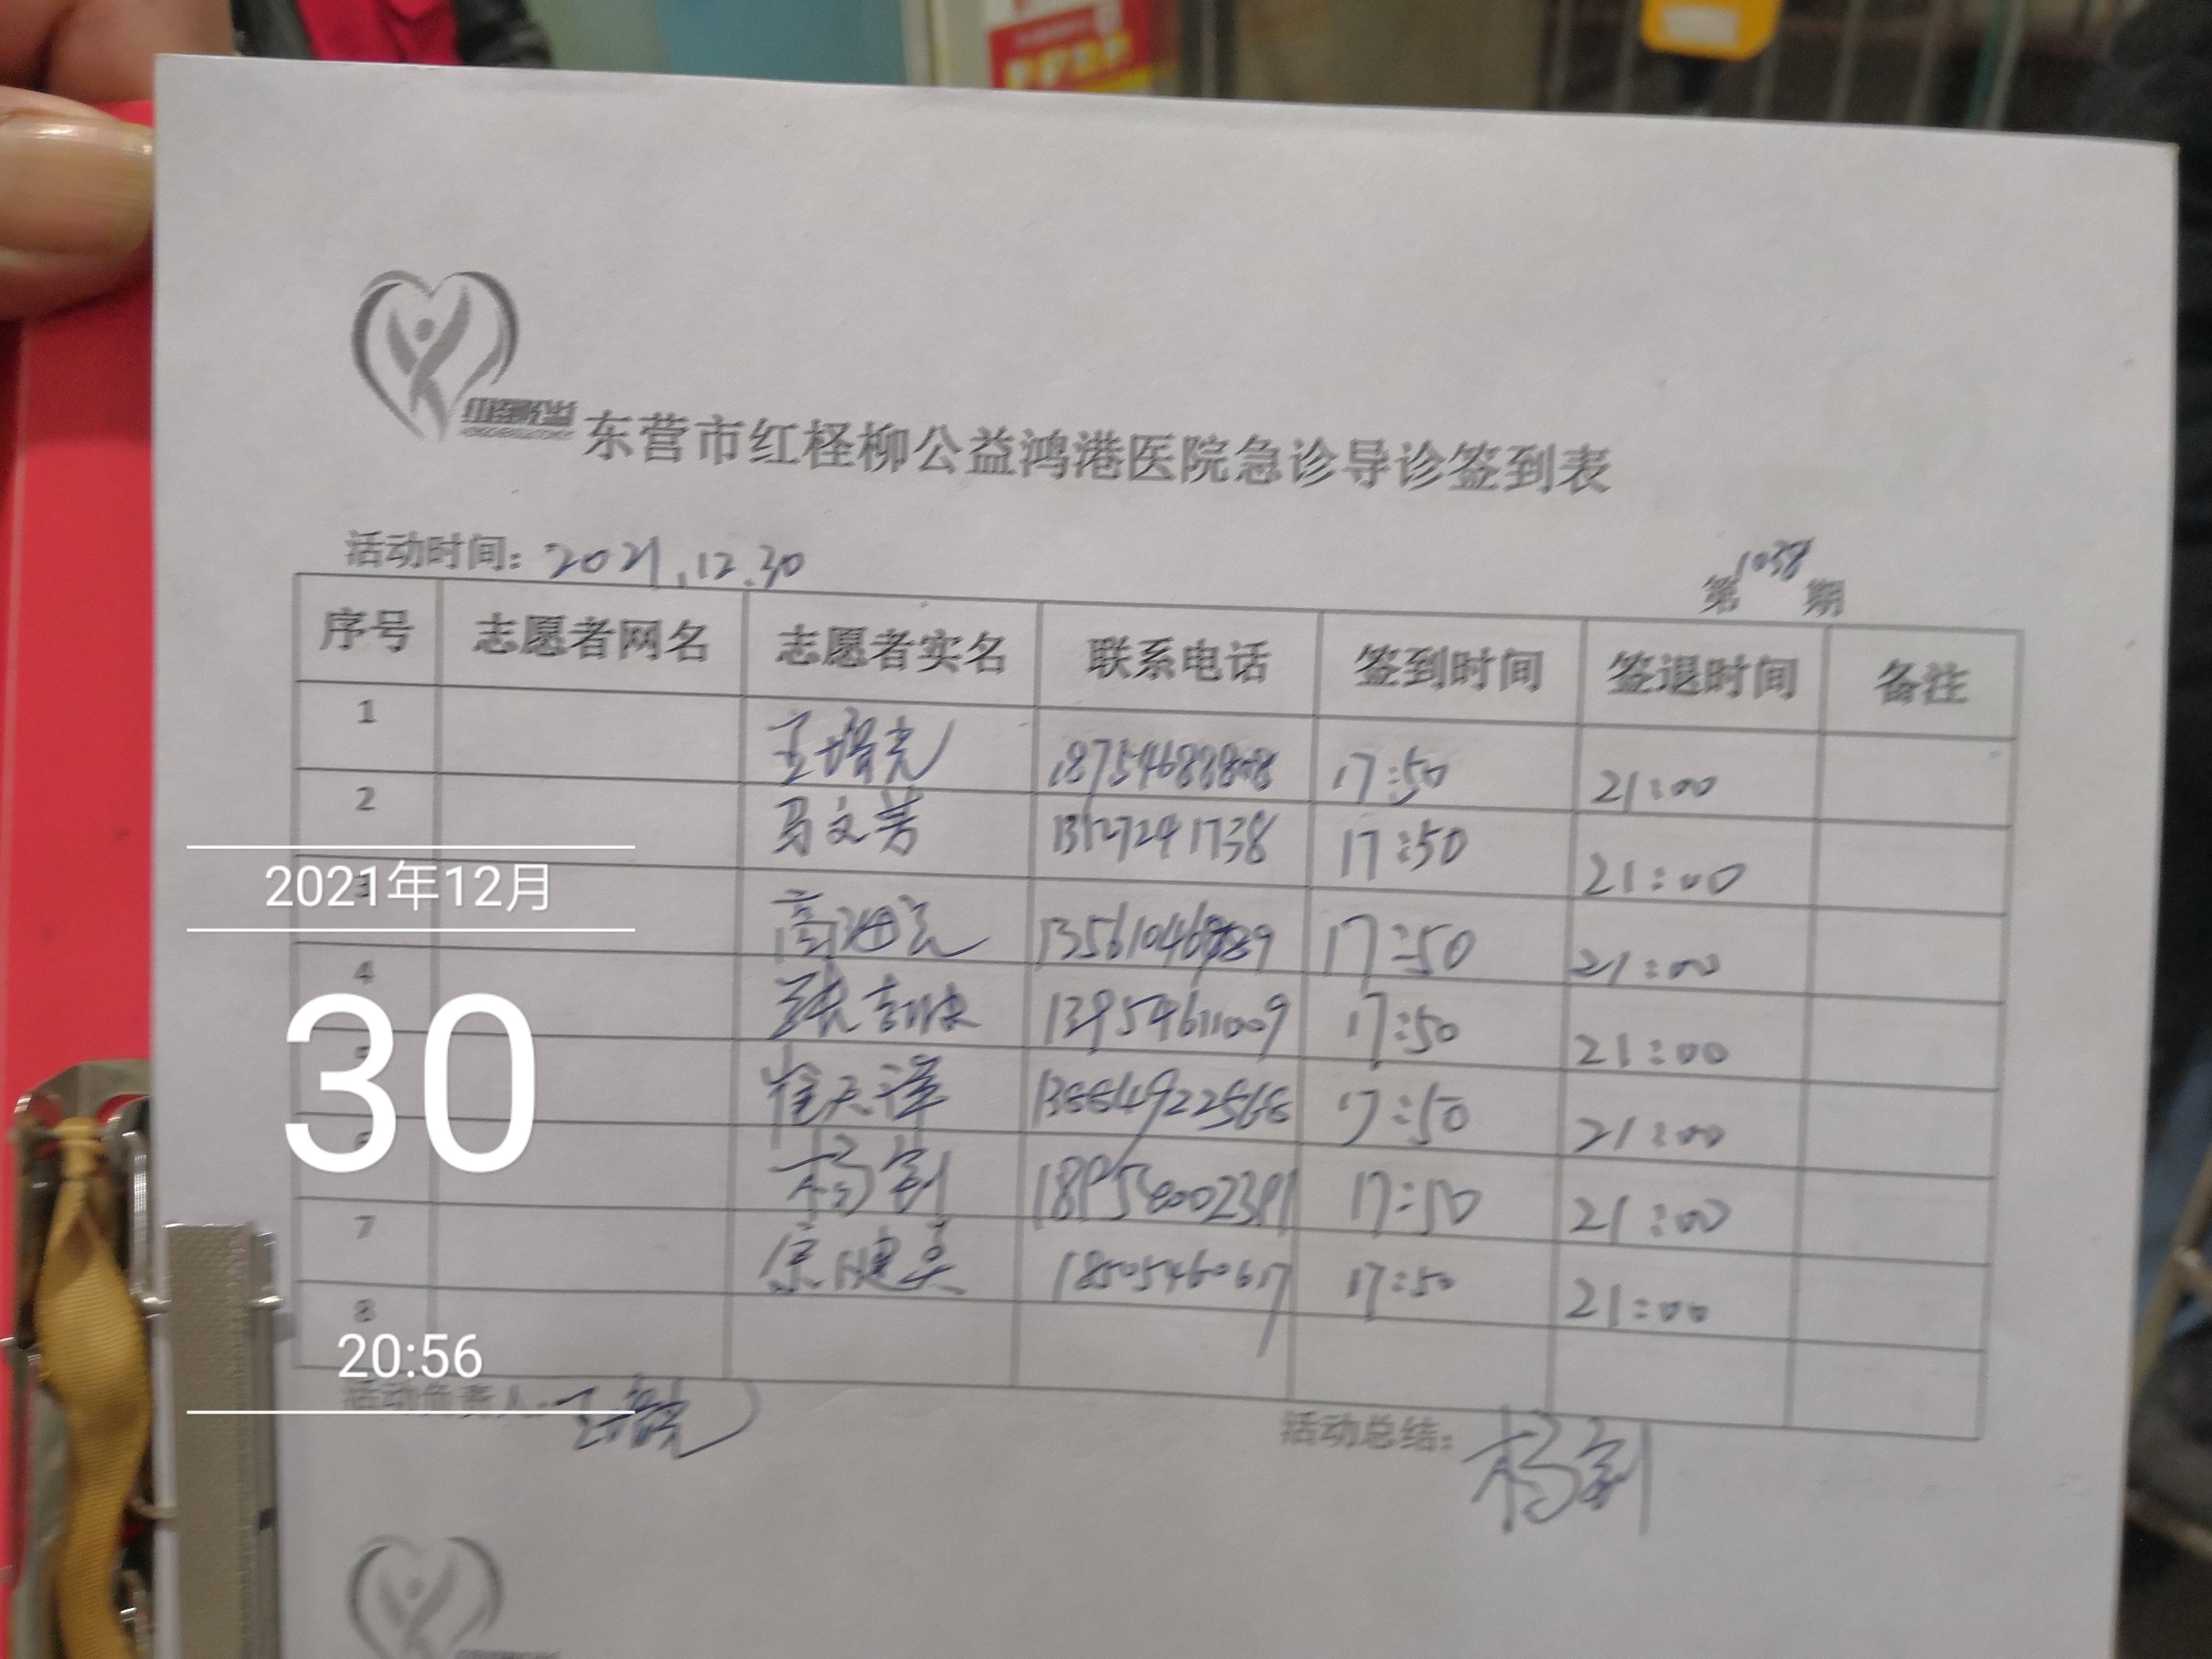 东营市红柽柳公益鸿港医院急诊导诊签到表
活动时间: 2021.12.30
第1038期
序号 志愿者网名 志愿者实名 联系电话 签到时间 签退时间 备注
1 王增光 17:50 21:00
2 马文芳 13127241738 17:50 21:00
2021年12月
3 17:50 21:00
4 13954611009 17:50 21:00
30
5 崔天泽 17:50 21:00
6 杨剑 17:50 21:00
7 18505460617 17:50 21:00
8
20:56
活动负责人: 王增光
活动总结: 杨剑